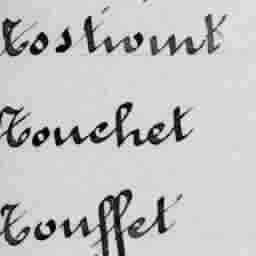 Tostivint
Touchet
Touffet